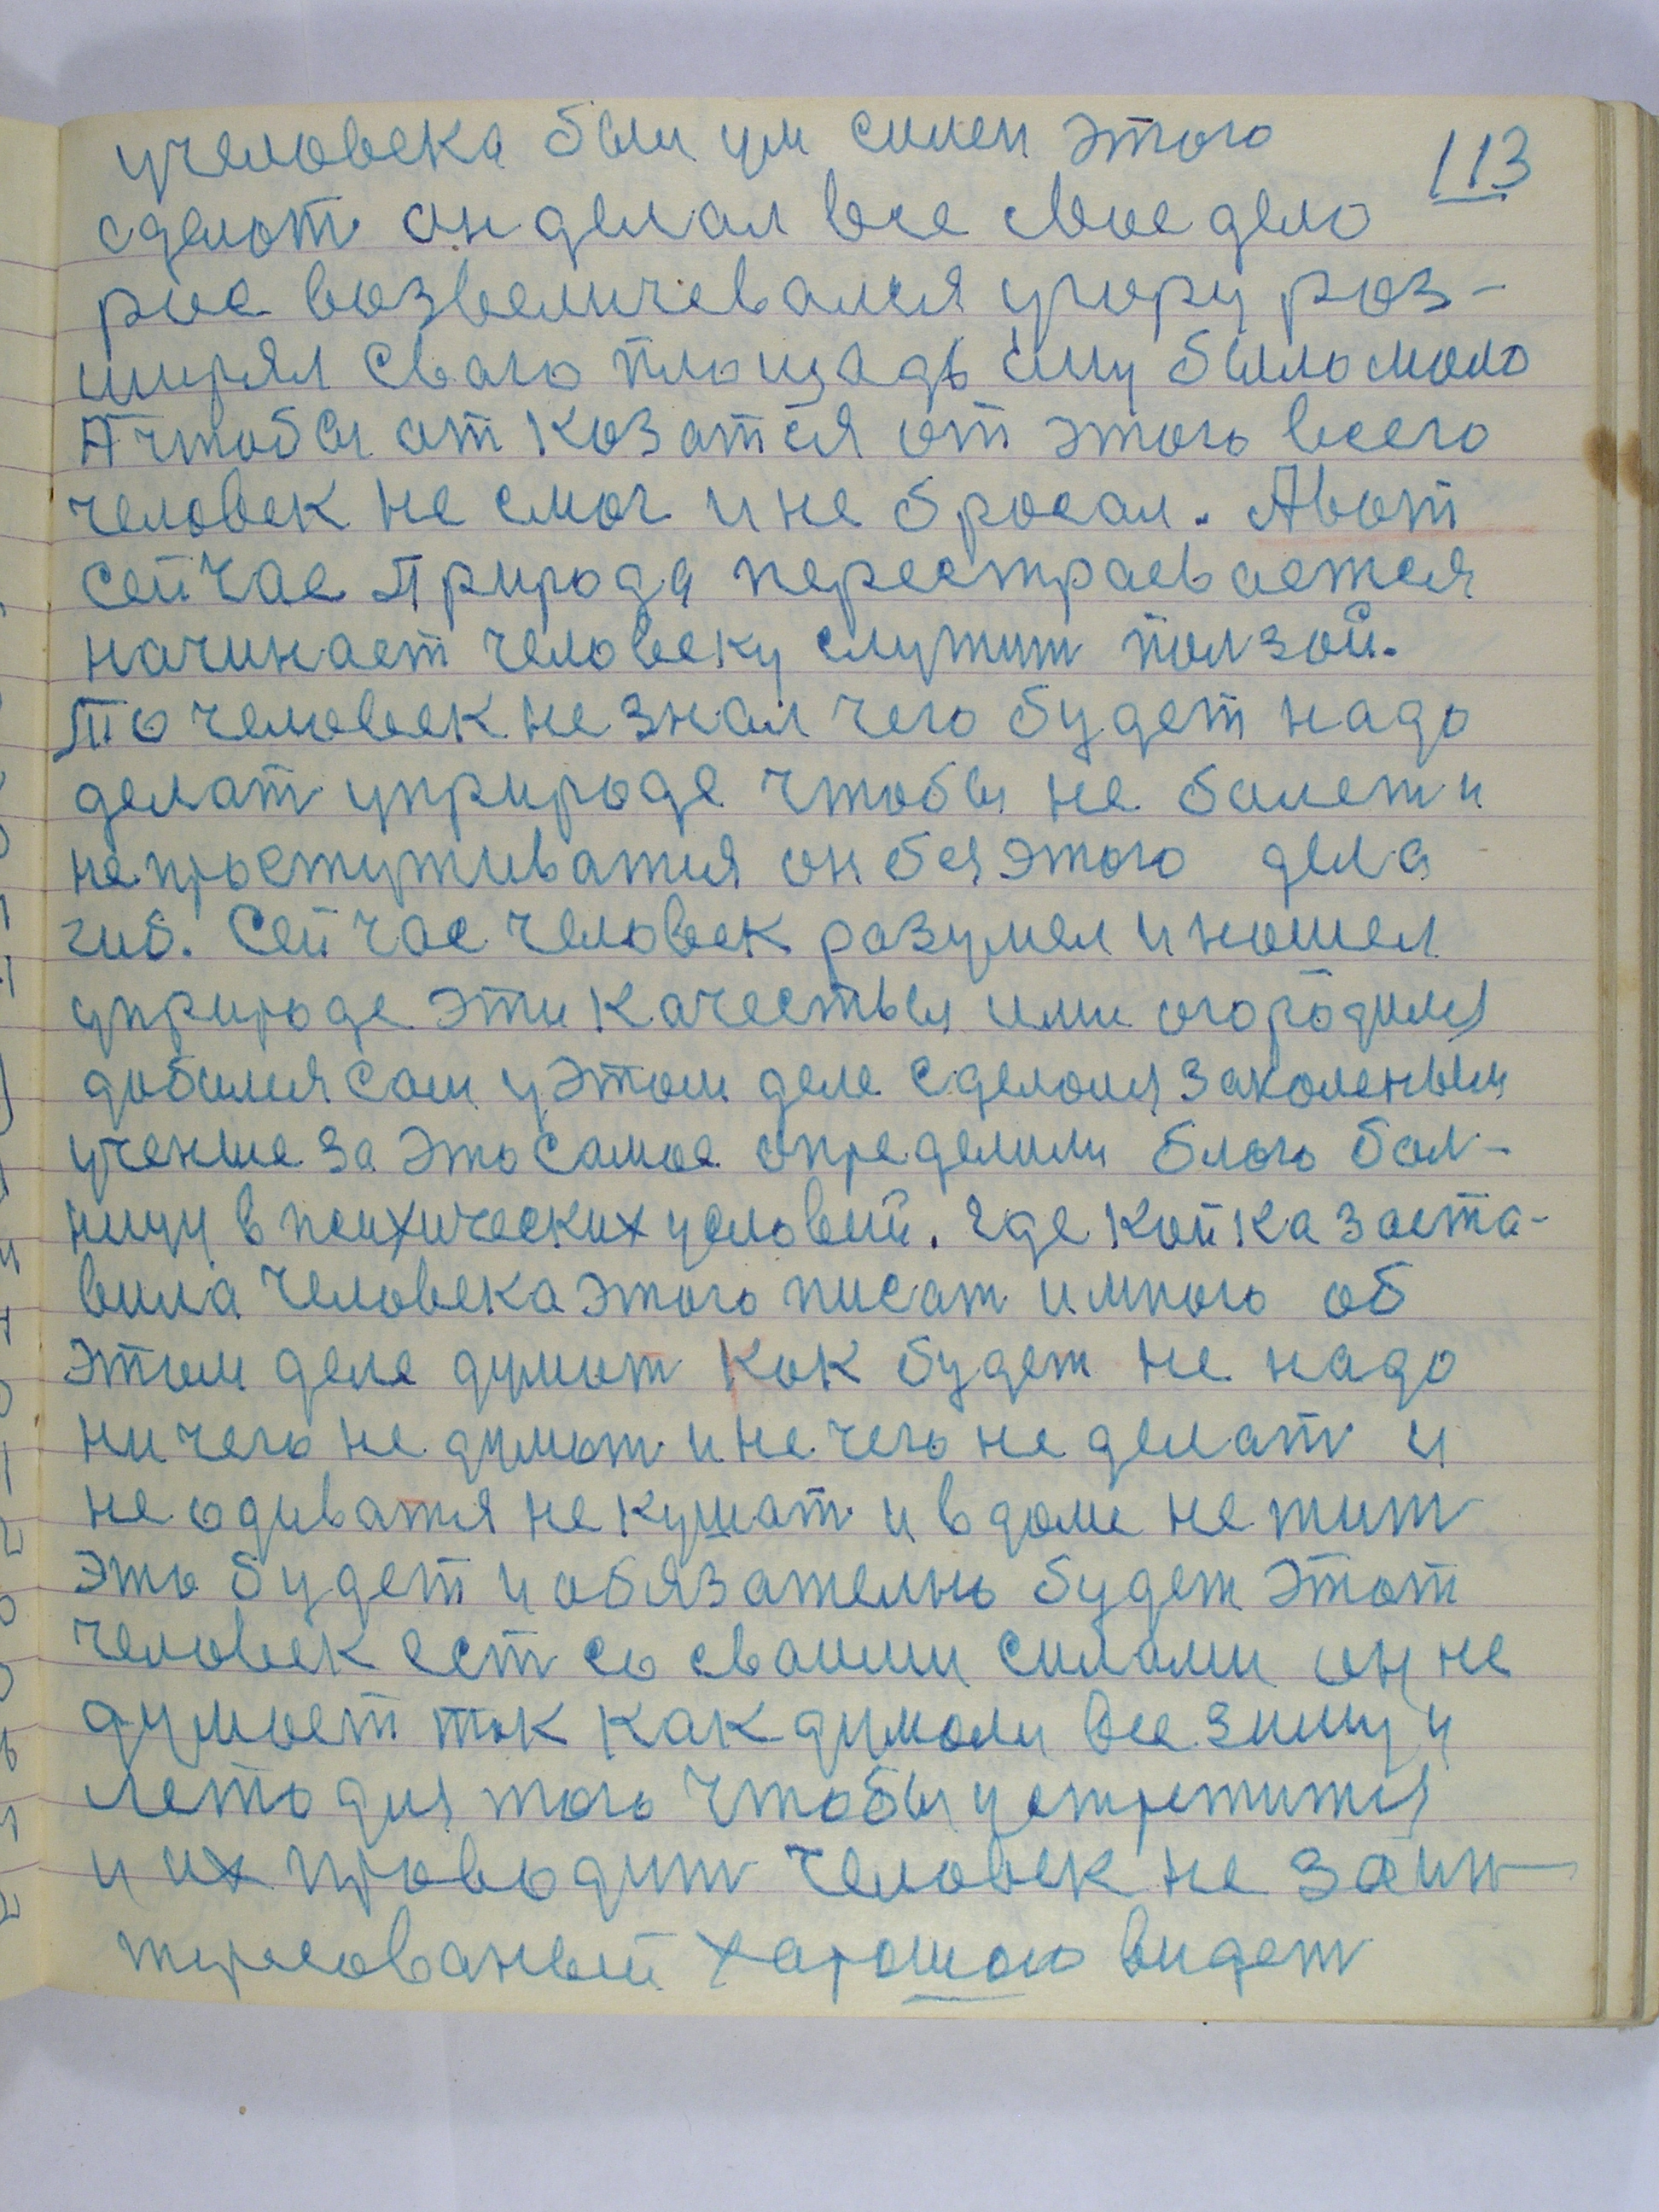 113
учеловека был ум силен этого
сделат он делал все свое дело
рос возвеличевался угору роз-
ширял сваго площадь ему было мало
А чтобы отказатся от этого всего
человек не смог и не бросал. А вот
сейчас природа перестраевается
начинает человеку служит ползой.
То человек не знал чего будет надо
делат уприроде чтобы не балет и
не простуживатся он без этого дела
гиб. Сейчас человек разумел и нашел
уприроде эти качествы ими огородился
добился сам у этом деле сделался закаленым
ученые за это самое определили блого бол-
ницу в психических условий. Где койка заста-
вила человека этого писат и много об
этим деле думат как будет не надо
ни чего не думат и не чего не делат и
не одиватся не кушат и в доме не жит
это будет и обязателно будет этот
человек ест со сваими силами он не
думает так как думали все зиму и
лето для того чтобы устретится
и их проводит человек не заин-
тересованый харошого видет